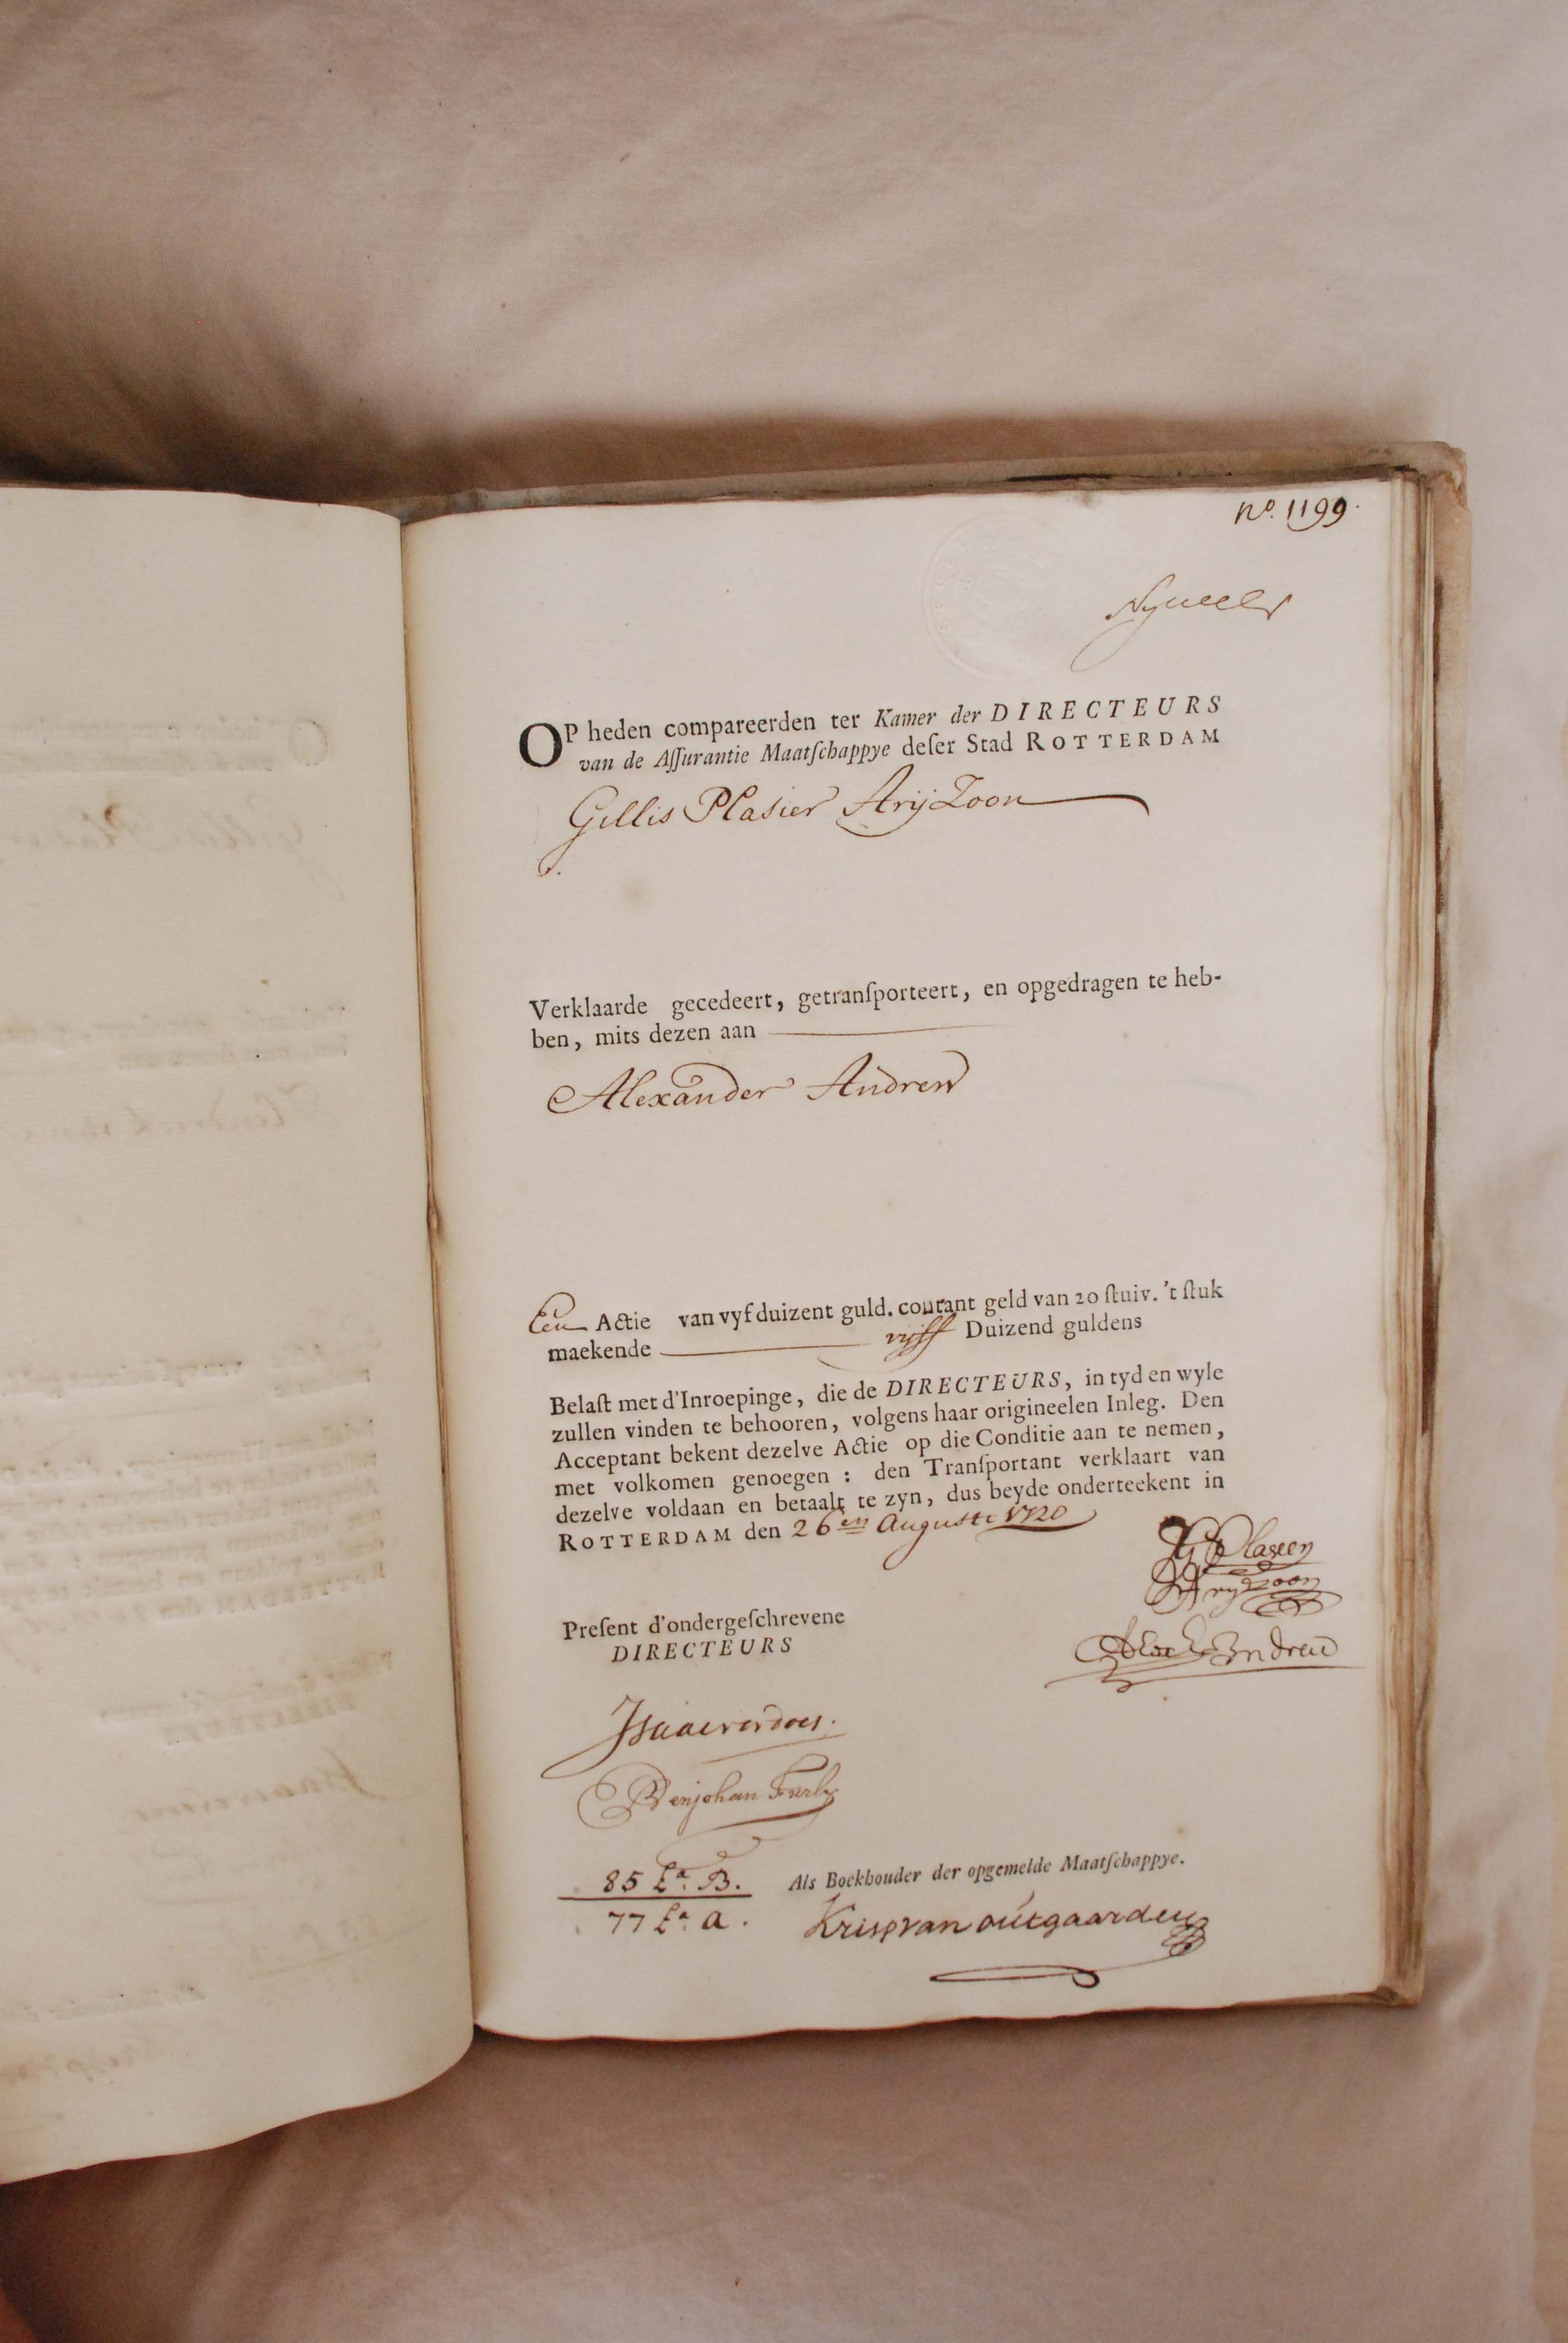 No. 1199.
OP heden compareerden ter Kamer der DIRECTEURS
van de Aſſurantie Maatſchappye deſer Stad ROTTERDAM
Gillis Plasier ArijZoon
Verklaarde gecedeert, getranſporteert, en opgedragen te heb-
ben, mits dezen aan
Alexander Andrew
Een Actie van vyf duizent guld. courant geld van 20 ſtuiv. 't ſtuk
maekende vijff Duizend guldens
Belaſt met d'Inroepinge, die de DIRECTEURS, in tyd en wyle
zullen vinden te behooren, volgens haar origineelen Inleg. Den
Acceptant bekent dezelve Actie op die Conditie aan te nemen,
met volkomen genoegen : den Tranſportant verklaart van
dezelve voldaan en betaalt te zyn, dus beyde onderteekent in
ROTTERDAM den 26en Augusti 1720
G Plasier
Aryzoon
Alex Andrew
Preſent d'ondergeſchrevene
DIRECTEURS
Isaacverdoes.
Benjohan Furly
85 La. B. Als Boekhouder der opgemelde Maatſchappye.
77 La. a. Krisp van outgaarden